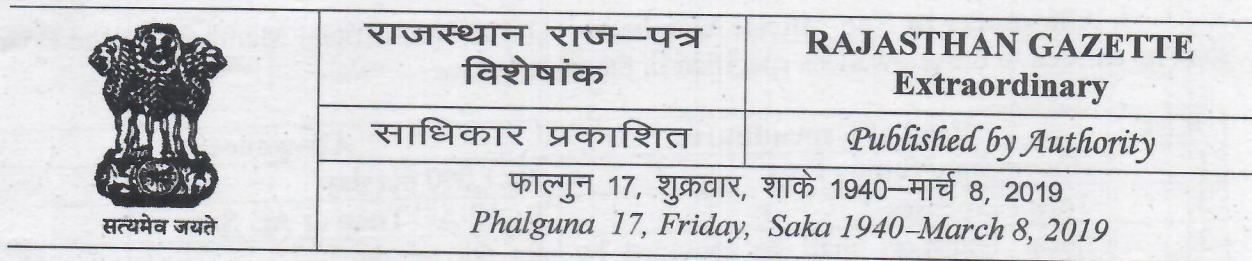 सत्यमेव जयते
राजस्थान राज—पत्र
विशेषांक
RAJASTHAN GAZETTE
Extraordinary
साधिकार प्रकाशित
Published by Authority
फाल्गुन 17, शुक्रवार, शाके 1940—मार्च 8, 2019
Phalguna 17, Friday, Saka 1940–March 8, 2019